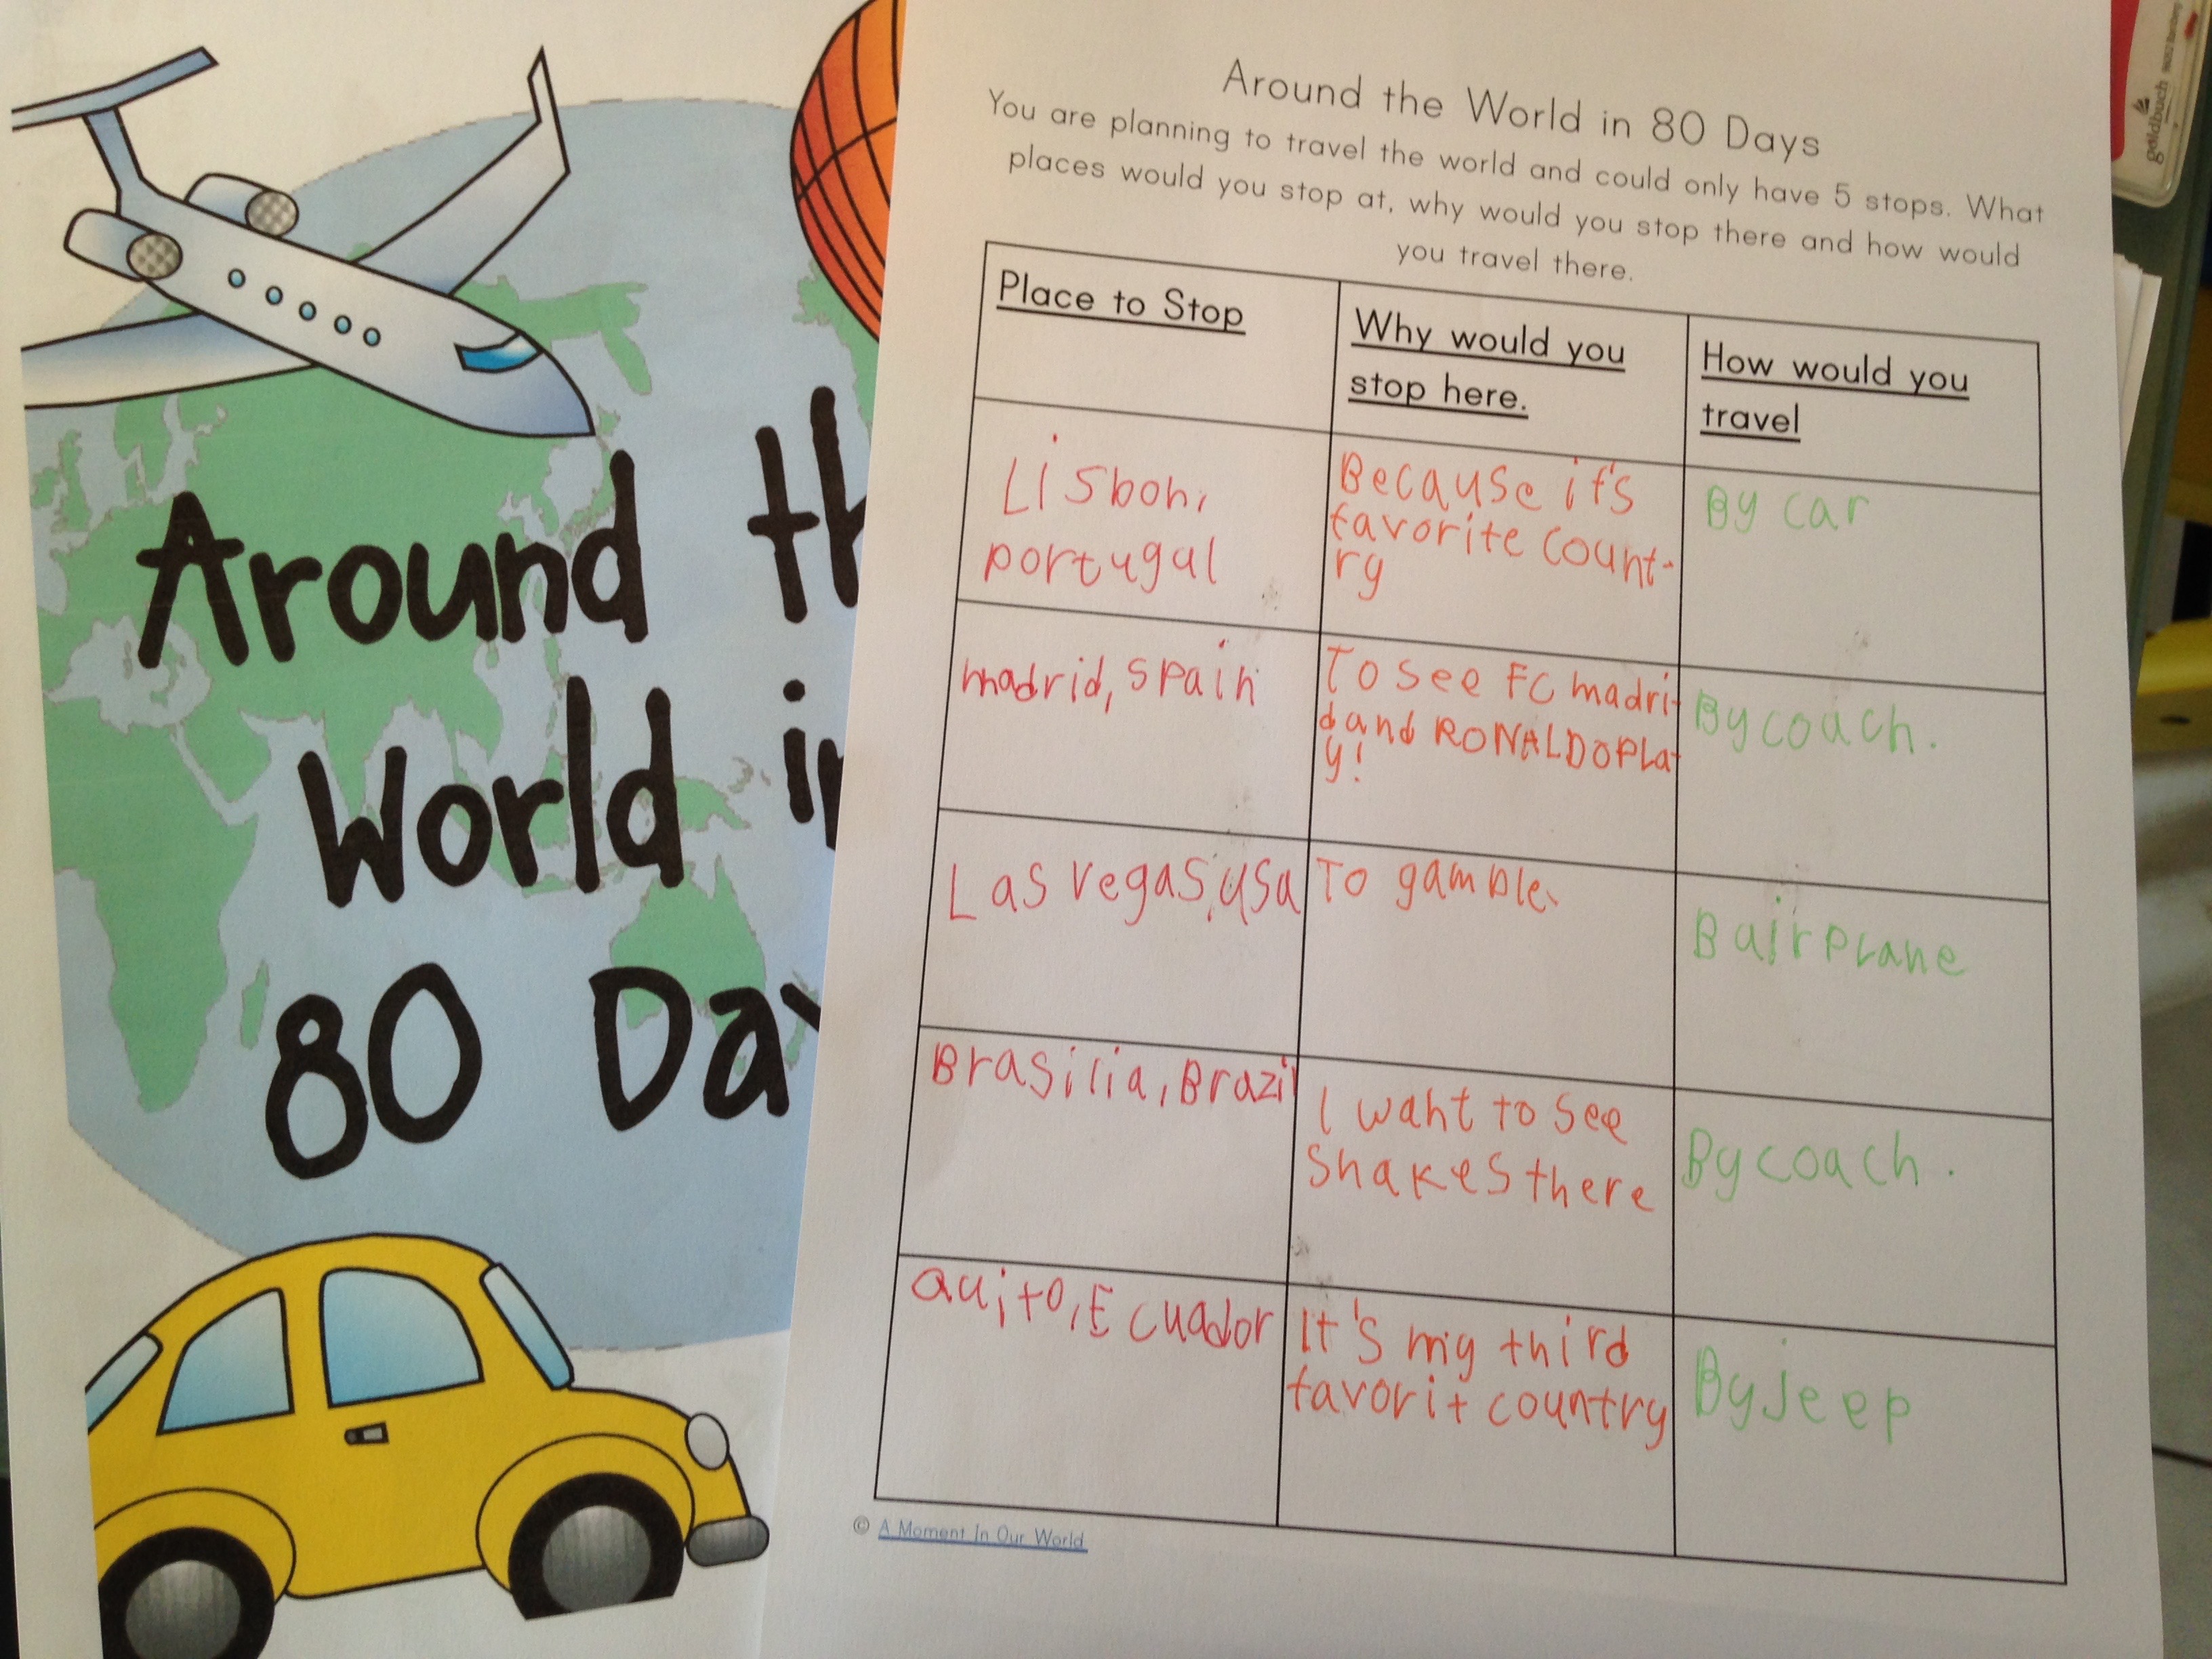 Around th
World in
80 Day
Around the World in 80 Days
You are planning to travel the world and could only have 5 stops. What
places would you stop at, why would you stop there and how would
you travel there.
Place to Stop
Why would you
stop here.
How would you
travel
Lisbon,
portugal
Because it's
favorite count-
ry
By car
madrid, spain
To see FC madri-
d and RONALDO Pla-
y!
By coach.
Las vegas, usa
To gamble.
B airplane
Brasilia, Brazil
I want to see
Snakes there
By coach.
Quito, Ecuador
It's my third
favorit country
By jeep
© A Moment In Our World
goldbuch